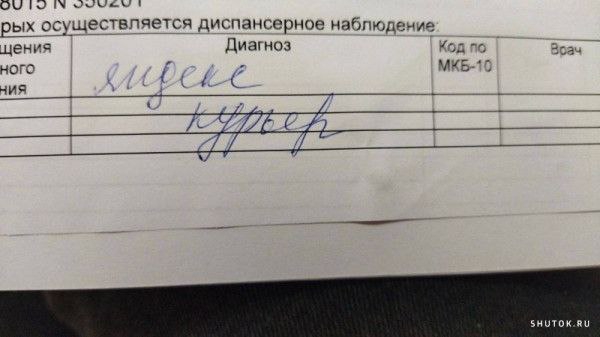 8015 N 350201
рых осуществляется диспансерное наблюдение:
щения
ного
ния
Диагноз
Код по
МКБ-10
Врач
яндекс
курьер
SHUTOK.RU